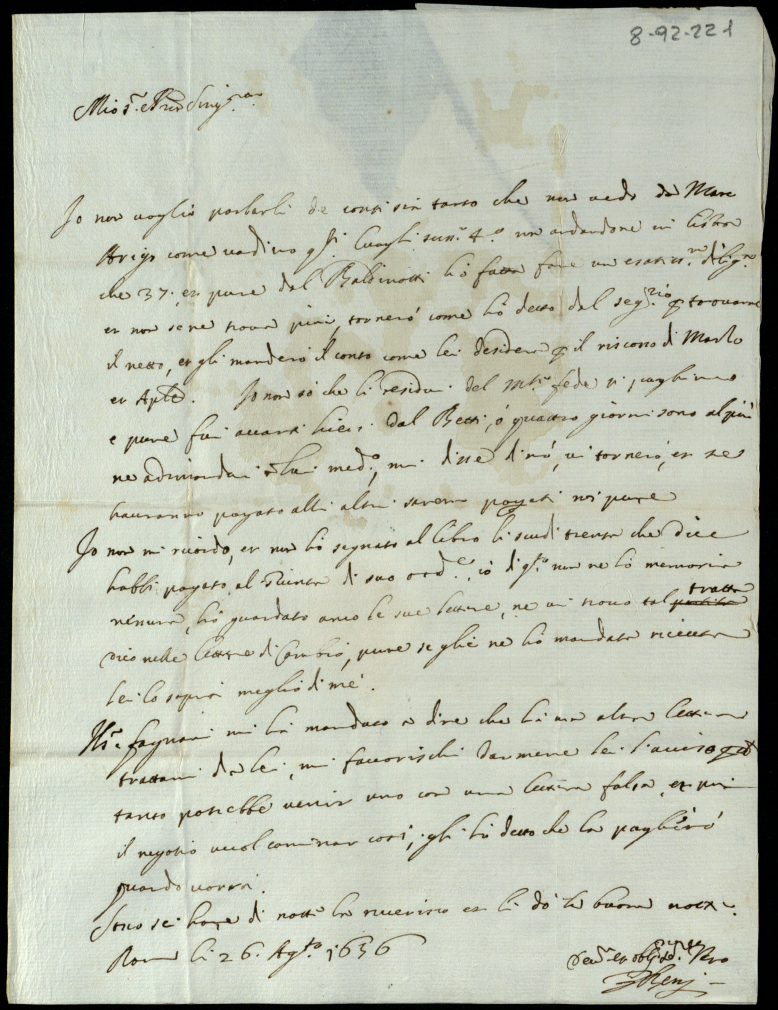 8-92-221
Mio S.r e Pron Sing.mo
Io non voglio parlarli de conti sin tanto che non vedo da Marc
Arigo come vadino q.sti luoghi non andandone in libro
che 37. et pure dal Baldinotti hò fatto fare un esatiss.
et non se ne trova più, tornerò come hò detto dal seg.rio p trovarne
il netto, et gli manderò il conto come lei desidera p il riscosso di Marzo
et Aple. Io non sò che li residui del fede si paghino
e pure fui avanti hieri dal Betti, ò quattro giorni sono al più
ne adimandai à lui med.o, mi disse di nò, vi tornerò, et se
hauranno pagato alli altri saremo pagati noi pure
Io non mi ricordo, et non hò segnato al libro li scudi trenta che dice
habbi pagato al Giunta di suo ord.e, iò di q.to non ne hò memoria
nessuna, hò guardato anco le sue lettere, ne vi trovo tal partita tratta
dico nelle lettere di Cambio, pure se gliè ne hò mandata ricevuta
lei lo saprà meglio di me.
fagnani mi hà mandato à dire che hà una altra lettera
trattami da lei, mi favorischi darmene lei l'aviso
tanto potrebbe venir uno con una lettera falsa, et poi
il negotio vuol caminar così, gli hò detto che la pagherò
quando vorrà.
Sono sei hore di notte la riverisco et li dò la buona notte.
Roma li 26. Ag.to 1656
Dev.mo et oblig. Ser.re Vero